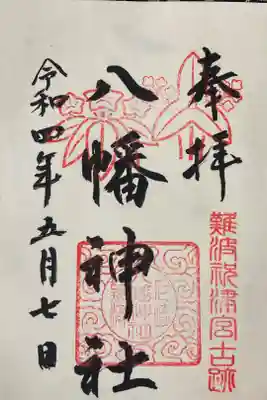 奉拝
難波祝津宮古跡
八幡神社
令和四年五月七日